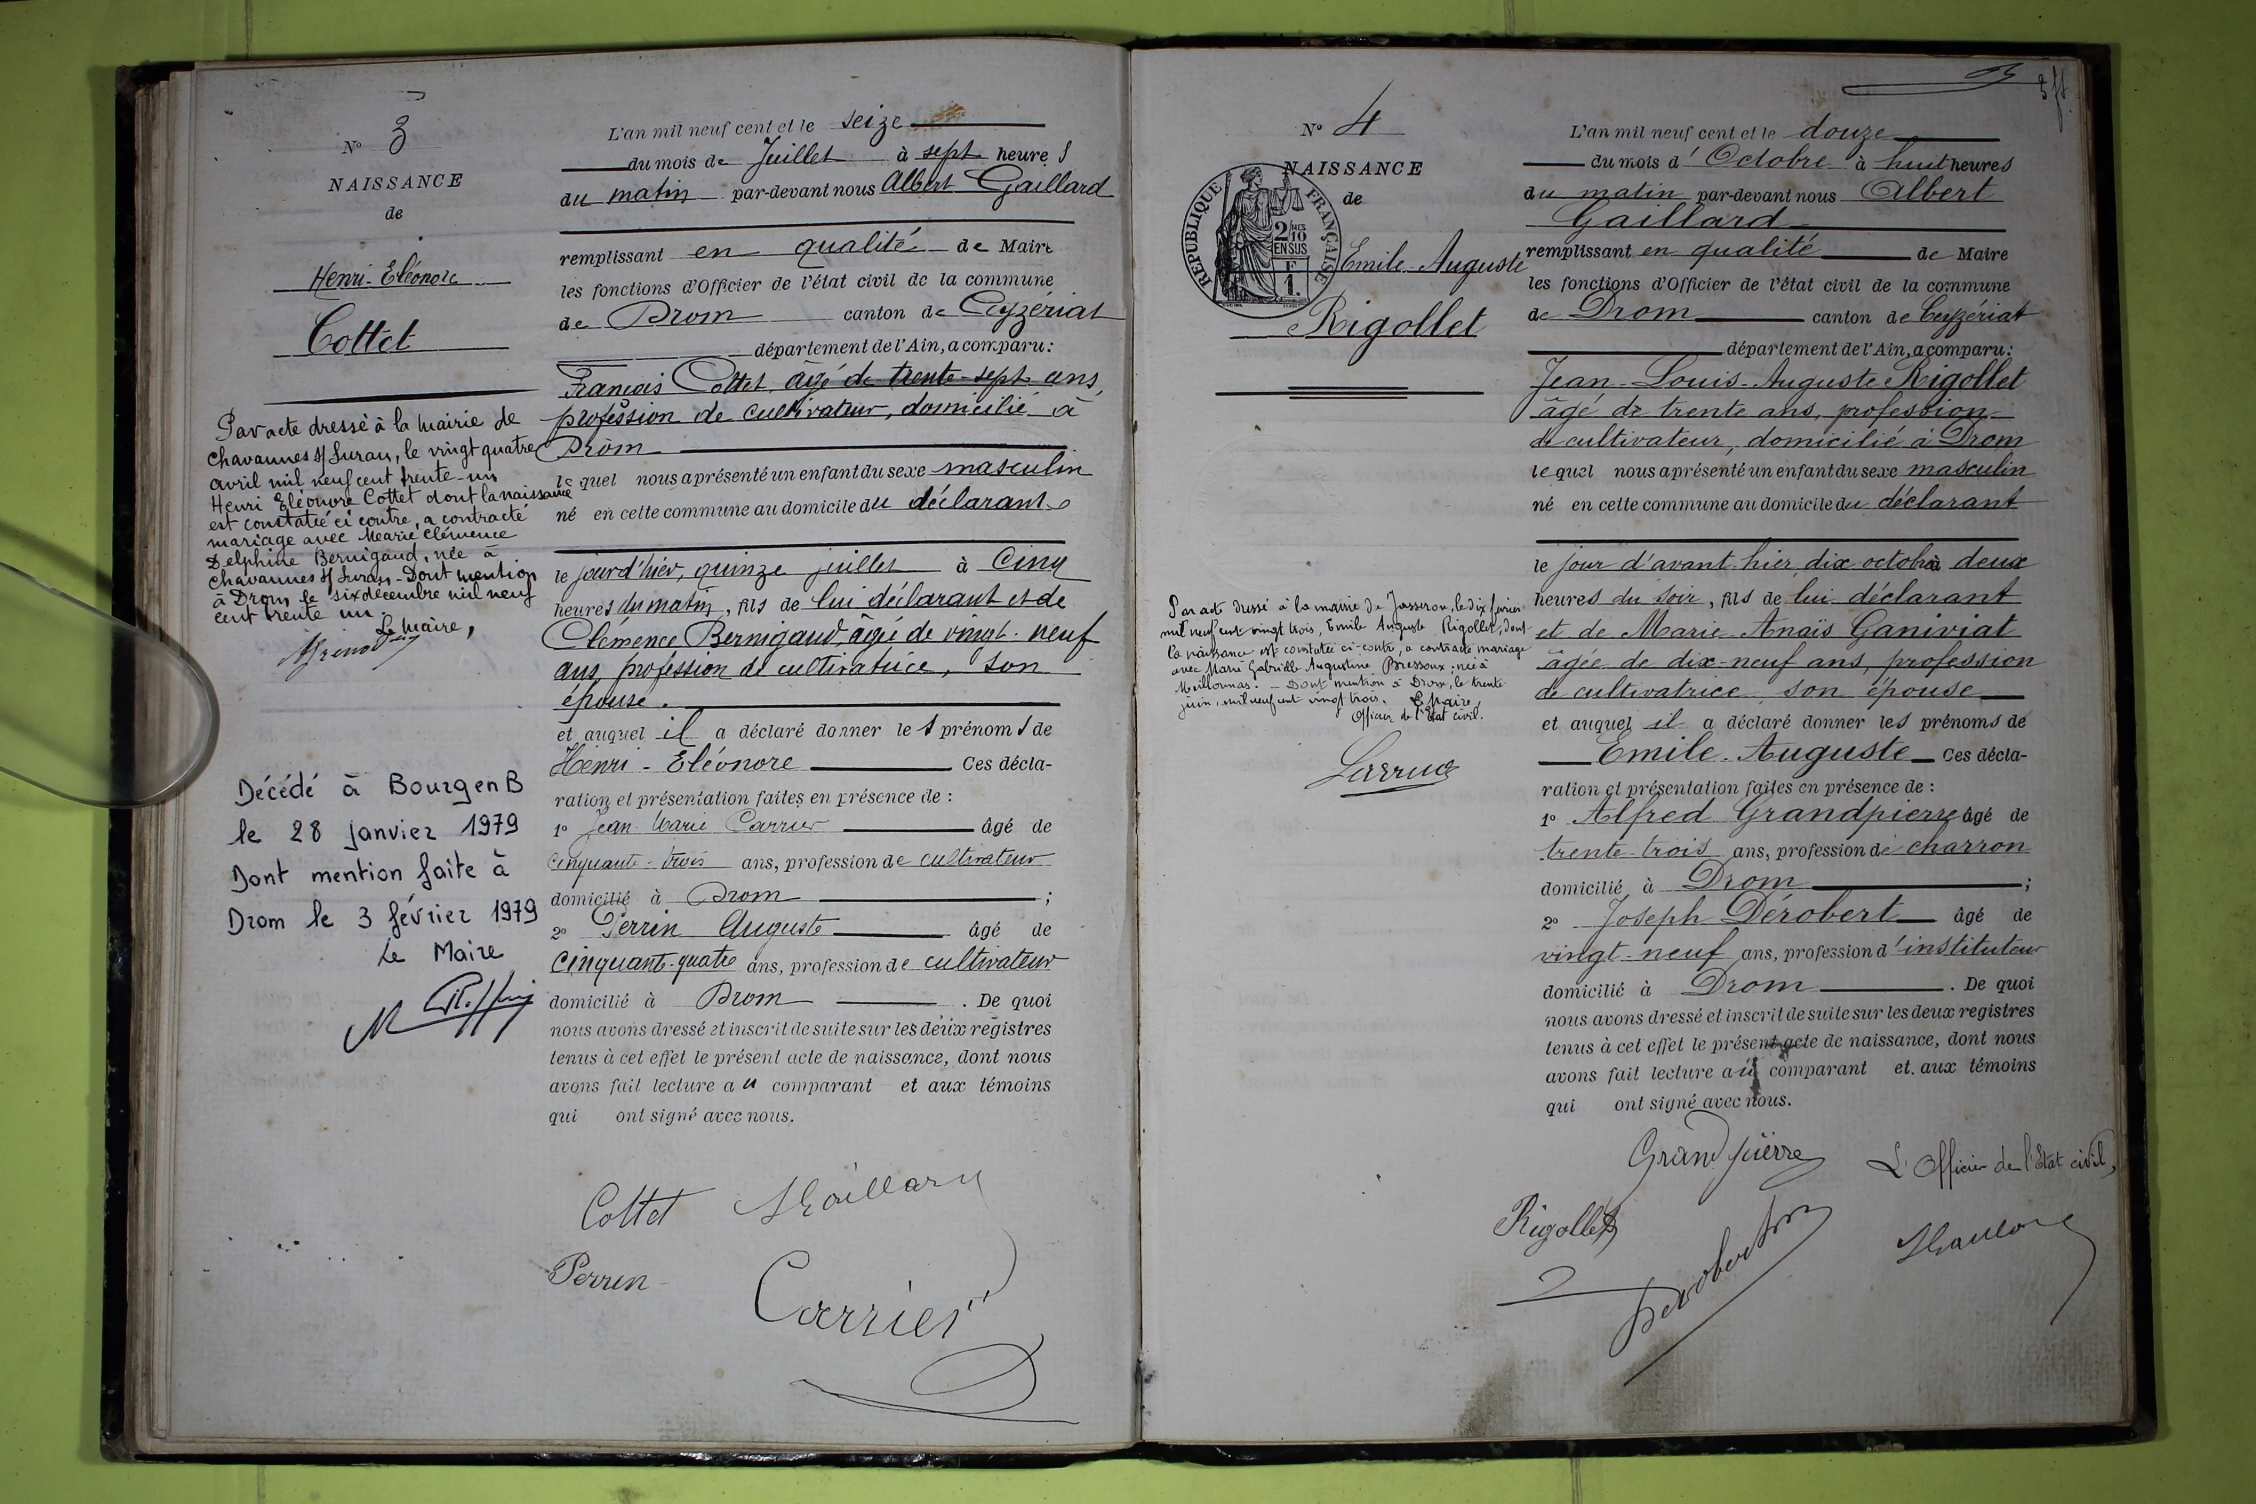 N° 3
NAISSANCE
de
Henri-Eléonore
Cottet
Par acte dressé à la mairie de
Chavannes s/ Suran, le vingt quatre
avril mil neuf cent trente-un
Henri Eléonore Cottet dont la naissance
est constatée ci contre, a contracté
mariage avec Marie Clémence
Delphine Bernigaud, née à
Chavannes s/ Suran - Dont mention
à Drom le six décembre mil neuf
cent trente un.
Le Maire,
Décédé à Bourg en B
le 28 janvier 1979
Dont mention faite à
Drom le 3 février 1979
Le Maire
L'an mil neuf cent et le seize
du mois de Juillet à sept heures
du matin par-devant nous Albert Gaillard
remplissant en qualité de Maire
les fonctions d'Officier de l'état civil de la commune
de Drom canton de Ceyzériat
département de l'Ain, a comparu:
François Cottet, âgé de trente-sept ans,
profession de cultivateur, domicilié à
Drom
lequel nous a présenté un enfant du sexe masculin
né en cette commune au domicile du déclarant
le jour d'hier, quinze juillet à cinq
heures du matin, fils de lui déclarant et de
Clémence Bernigaud âgée de vingt-neuf
ans, profession de cultivatrice, son
épouse.
et auquel il a déclaré donner les prénoms de
Henri - Eléonore Ces décla-
ration et présentation faites en présence de :
1° Jean Marie Carrier âgé de
cinquante-trois ans, profession de cultivateur
domicilié à Drom ;
2° Perrin Auguste âgé de
cinquante-quatre ans, profession de cultivateur
domicilié à Drom . De quoi
nous avons dressé et inscrit de suite sur les deux registres
tenus à cet effet le présent acte de naissance, dont nous
avons fait lecture au comparant et aux témoins
qui ont signé avec nous.
Cottet AGaillard
Perrin
Carrier
N° 4
NAISSANCE
de
RÉPUBLIQUE FRANÇAISE
2/10 MES
EN SUS
F
1.
Emile-Auguste
Rigollet
Par acte dressé à la mairie de Jasseron, le dix février
mil neuf cent vingt trois, Emile Auguste Rigollet, dont
la naissance est constatée ci-contre, a contracté mariage
avec Marie Gabrielle Augustine Bressoux ; née à
Meillonnas. - Dont mention à Drom, le trente
juin, mil neuf cent vingt trois. Le Maire,
Officier de l'Etat civil.
L'an mil neuf cent et le douze
du mois d'Octobre à huit heures
du matin par-devant nous Albert
Gaillard
remplissant en qualité de Maire
les fonctions d'Officier de l'état civil de la commune
de Drom canton de Ceyzériat
département de l'Ain, a comparu:
Jean-Louis-Auguste Rigollet
âgé de trente ans, profession
de cultivateur, domicilié à Drom
lequel nous a présenté un enfant du sexe masculin
né en cette commune au domicile du déclarant
le jour d'avant-hier, dix octobre à deux
heures du soir, fils de lui déclarant
et de Marie Anaïs Ganiviat
âgée de dix-neuf ans, profession
de cultivatrice son épouse
et auquel il a déclaré donner les prénoms de
Emile-Auguste Ces décla-
ration et présentation faites en présence de :
1° Alfred Grandpierre âgé de
trente-trois ans, profession de charron
domicilié à Drom ;
2° Joseph Dérobert âgé de
vingt-neuf ans, profession d'instituteur
domicilié à Drom . De quoi
nous avons dressé et inscrit de suite sur les deux registres
tenus à cet effet le présent acte de naissance, dont nous
avons fait lecture au comparant et aux témoins
qui ont signé avec nous.
Grandpierre L'Officier de l'Etat civil,
Rigollet